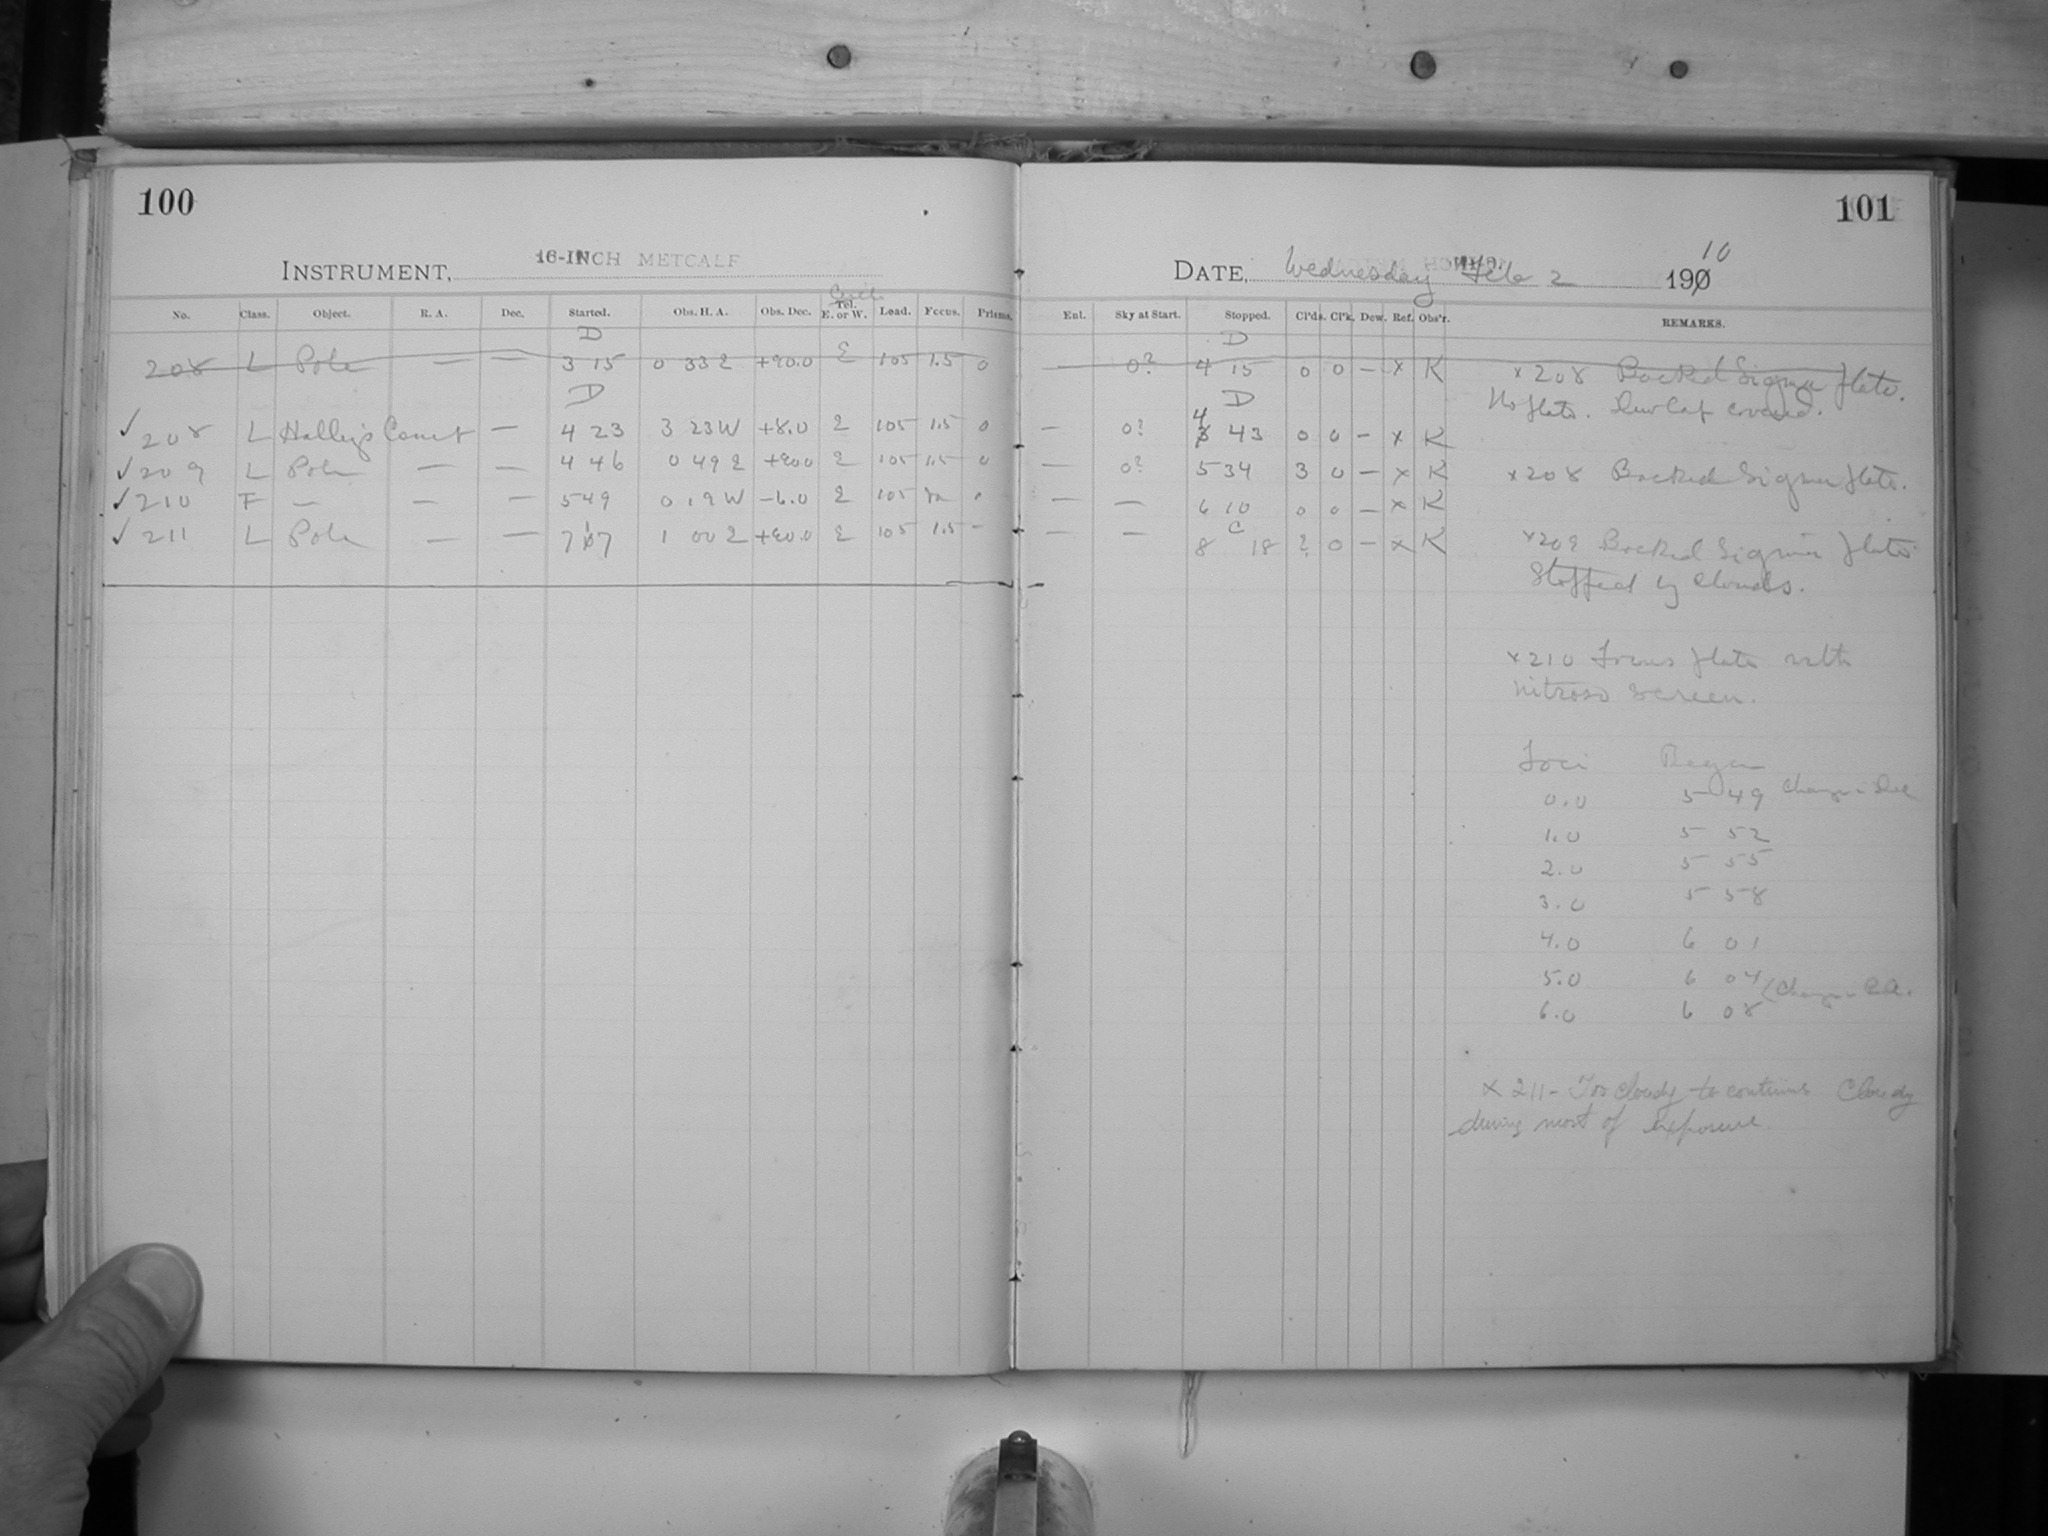 100
101
INSTRUMENT, 16-INCH METCALF
DATE, Wednesday Feb 2 1910
No. Class. Object. R. A. Dec. Started. Obs. H. A. Obs. Dec. Tel. E. or W. Load. Focus. Prisms.
Ent. Sky at Start. Stopped. Cl'ds. Cl'k. Dew. Ref. Obs'r. REMARKS.
D
D
208 L Pole — — 3 15 0 33 E +90.0 E 105 1.5 0
— 0? 4 15 0 0 — x K
x 208 Backed Sigma plate.
No plate. Dew Cap covered.
D
D
✓ 208 L Halley's Comet — 4 23 3 23 W +8.0 E 105 1.5 0
— 0? 4 43 0 0 — x K
✓ 209 L Pole — — 4 46 0 49 E +90.0 E 105 1.5 0
— 0? 5 34 3 0 — x K
x 208 Backed Sigma plate.
✓ 210 F — — — 5 49 0 19 W -6.0 E 105
— — 6 10 0 0 — x K
✓ 211 L Pole — — 7 07 1 00 E +90.0 E 105 1.5 —
C
— — 8 18 ? 0 — x K
x 209 Backed Sigma plate
Stopped by clouds.
x 210 Focus plate with
nitroso screen.
Foci Began
0.0 5 49 Change in Dec
1.0 5 52
2.0 5 55
3.0 5 58
4.0 6 01
5.0 6 04
(Change in R.A.
6.0 6 08
x 211 - Too cloudy to continue Cloudy
during most of exposure.